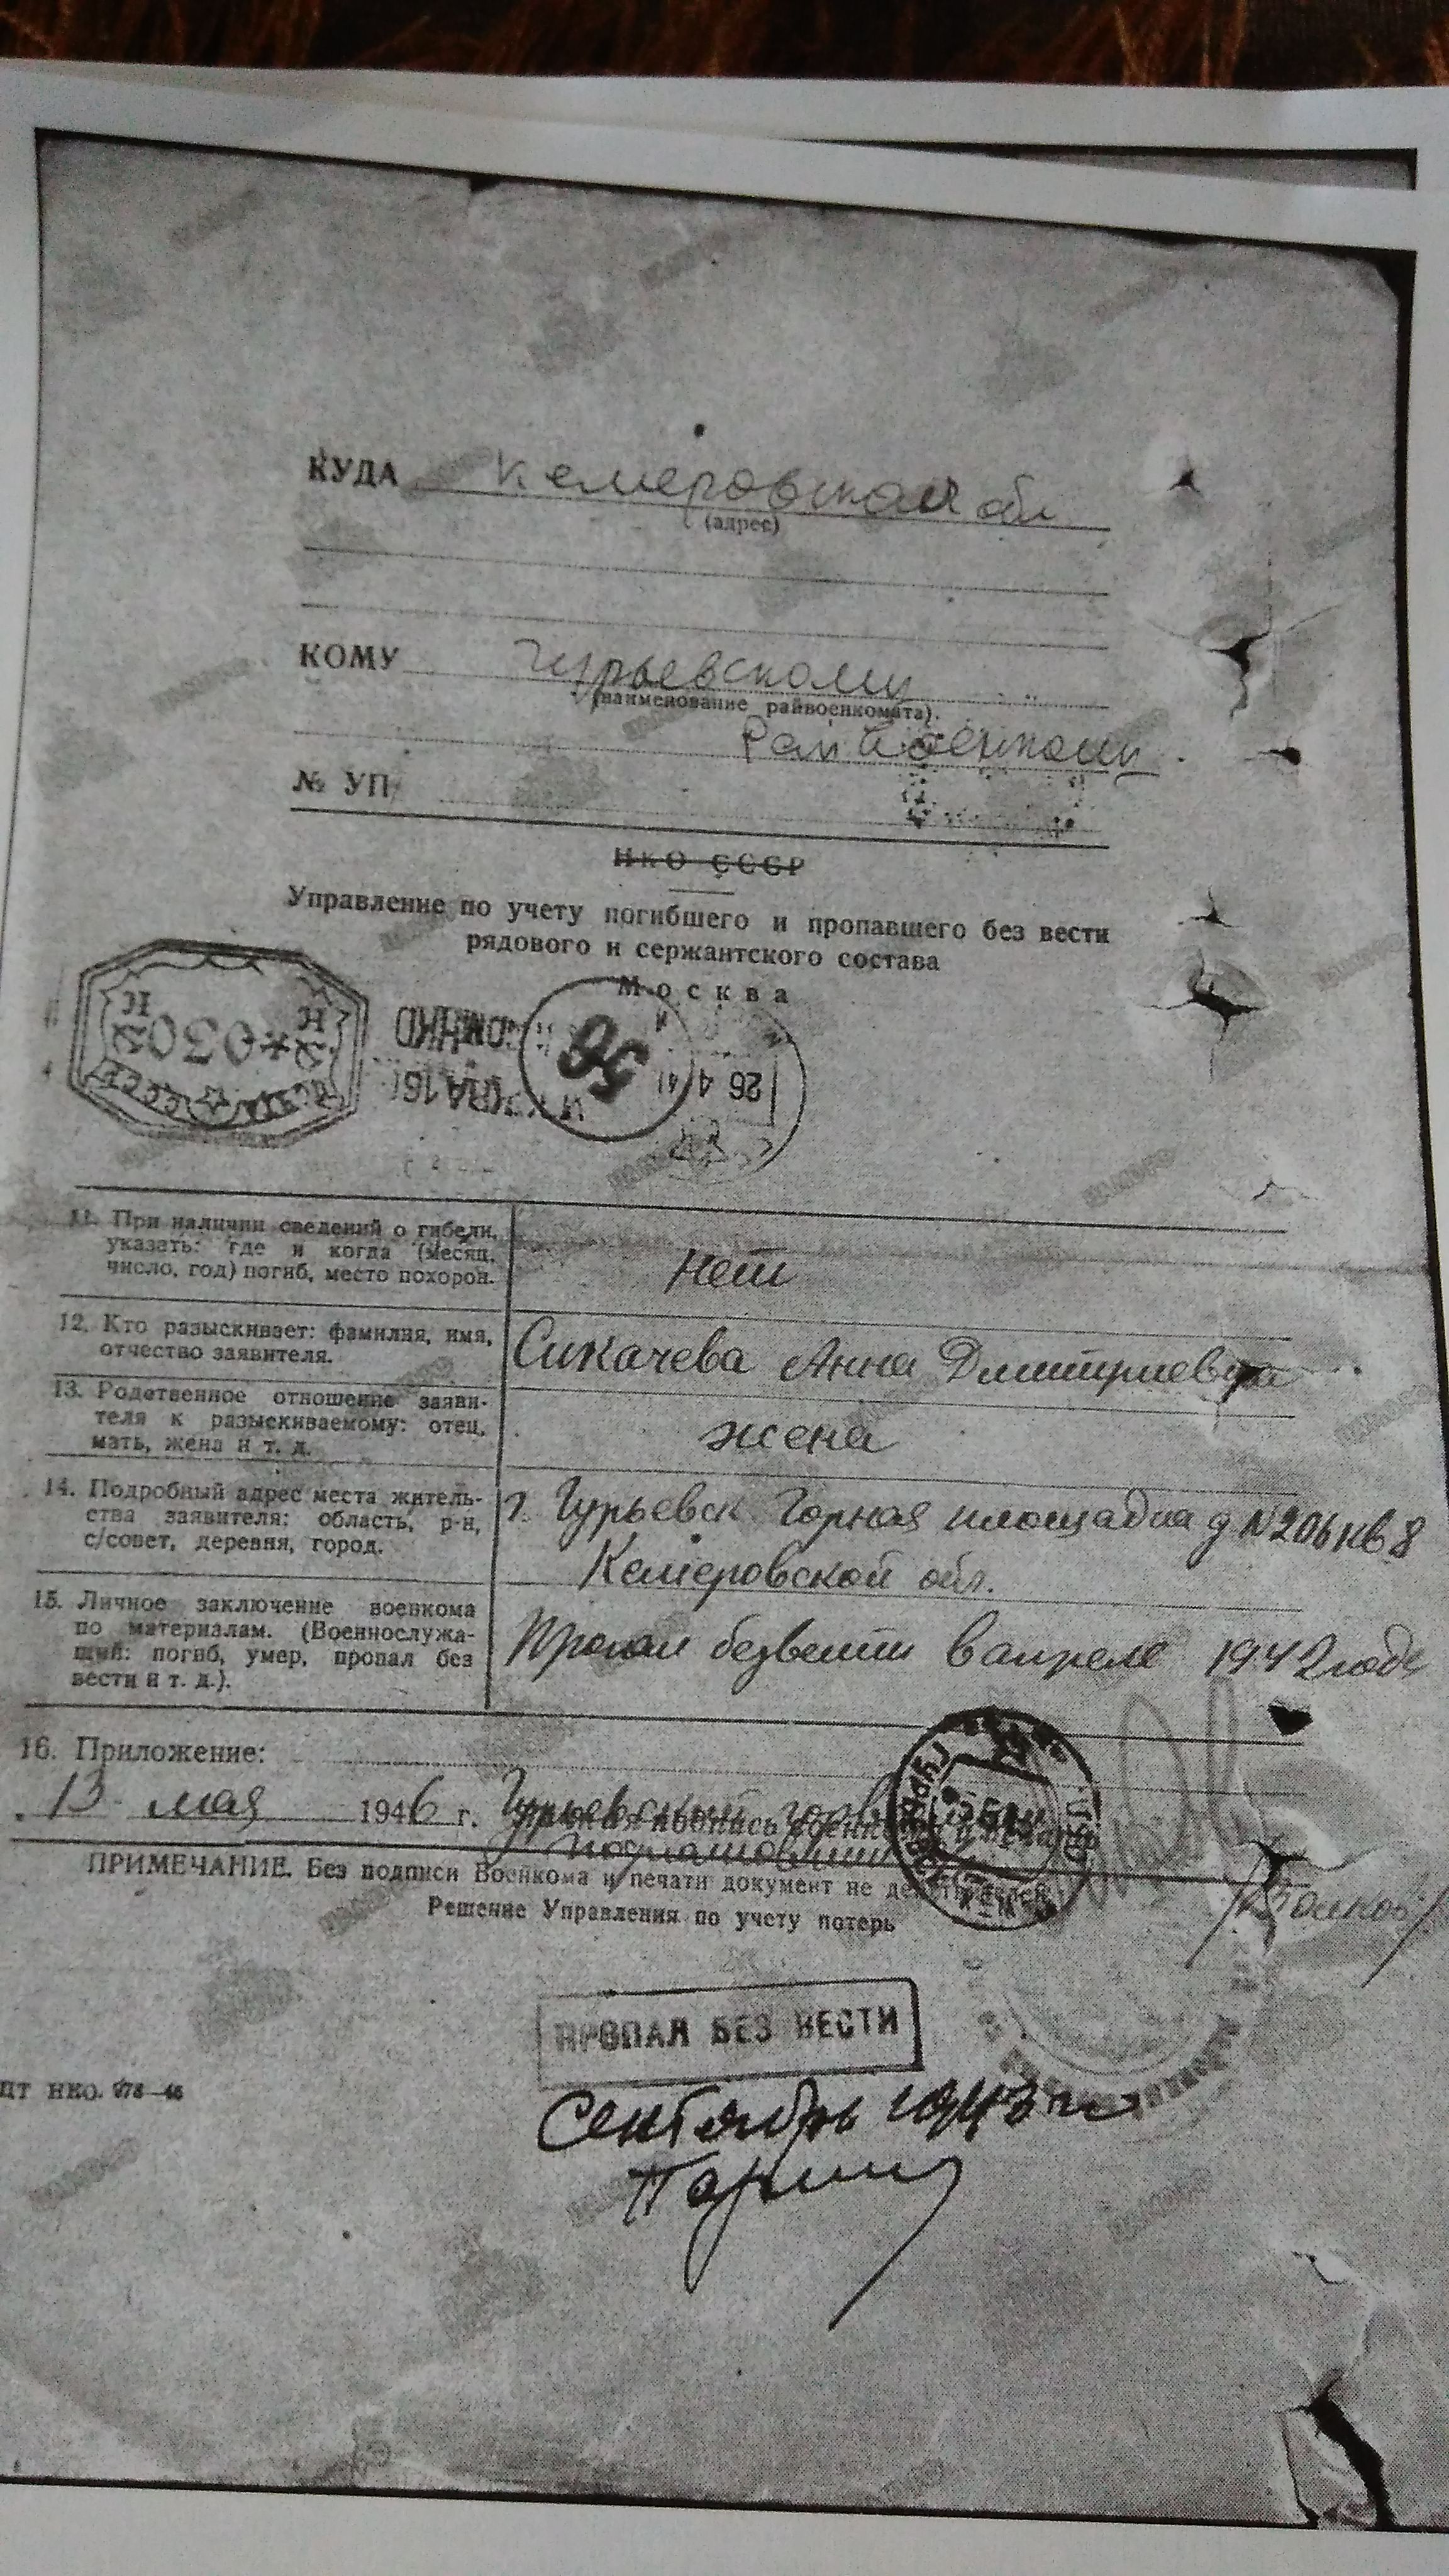 КУДА Кемеровская обл
(адрес)
КОМУ Гурьевскому
(наименование райвоенкомата).
Райвоенкому
№ УП
НКО СССР
Управление по учету погибшего и пропавшего без вести
рядового и сержантского состава
Москва
56
26 4
11. При наличии сведений о гибели,
указать: где и когда (месяц,
число, год) погиб, место похорон.
нет
12. Кто разыскивает: фамилия, имя,
отчество заявителя.
Сикачева Анна Дмитриевна
13. Родственное отношение заяви-
теля к разыскиваемому: отец,
мать, жена и т. д.
жена
14. Подробный адрес места житель-
ства заявителя: область, р-н,
с/совет, деревня, город.
г. Гурьевск Горная площадка д №206 кв 8
Кемеровской обл.
15. Личное заключение военкома
по материалам. (Военнослужа-
щий: погиб, умер, пропал без
вести и т. д.).
Пропал безвести в апреле 1942 года
16. Приложение:
13 мая 1946 г. Гурьевский
ПРИМЕЧАНИЕ. Без подписи Военкома и печати документ не действителен
Решение Управления по учету потерь
ПРОПАЛ БЕЗ ВЕСТИ
Сентябрь 1943 г.